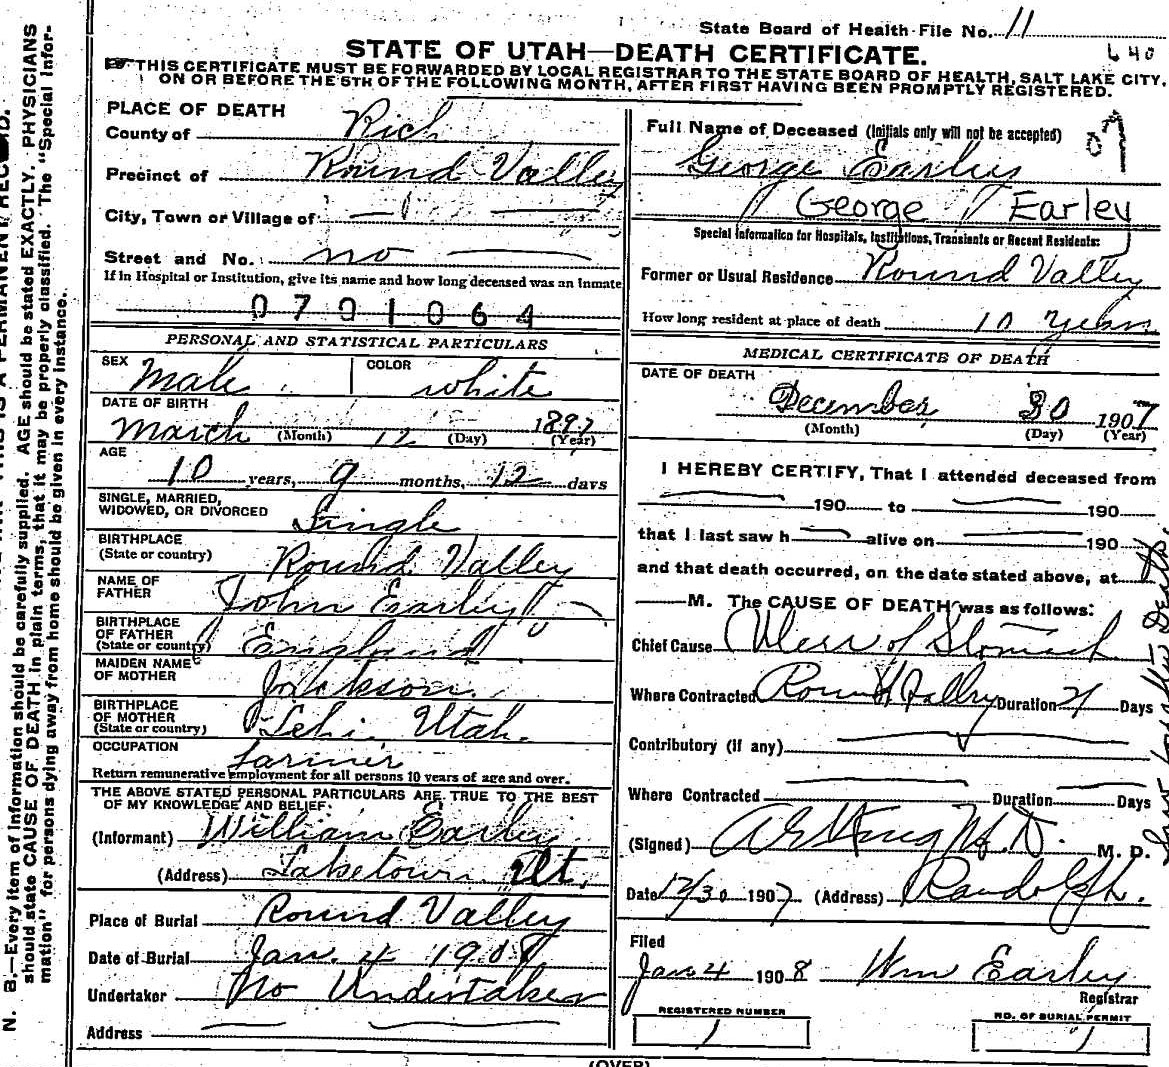 State Board of Health File No. 11
640
STATE OF UTAH—DEATH CERTIFICATE.
THIS CERTIFICATE MUST BE FORWARDED BY LOCAL REGISTRAR TO THE STATE BOARD OF HEALTH, SALT LAKE CITY,
ON OR BEFORE THE 5TH OF THE FOLLOWING MONTH, AFTER FIRST HAVING BEEN PROMPTLY REGISTERED.
PLACE OF DEATH
County of Rich
Precinct of Round Valley
City, Town or Village of
Street and No. no
If in Hospital or Institution, give its name and how long deceased was an Inmate
0701064
PERSONAL AND STATISTICAL PARTICULARS
SEX Male COLOR white
DATE OF BIRTH
March (Month) 12 (Day) 1897 (Year)
AGE
10 years, 9 months, 12 days
SINGLE, MARRIED,
WIDOWED, OR DIVORCED Single
BIRTHPLACE
(State or country) Round Valley
NAME OF
FATHER John Earley
BIRTHPLACE
OF FATHER
(State or country) England
MAIDEN NAME
OF MOTHER Jackson
BIRTHPLACE
OF MOTHER
(State or country) Lehi Utah.
OCCUPATION farmer
Return remunerative employment for all persons 10 years of age and over.
THE ABOVE STATED PERSONAL PARTICULARS ARE TRUE TO THE BEST
OF MY KNOWLEDGE AND BELIEF.
(Informant) William Earley
(Address) Laketown Ut.
Place of Burial Round Valley
Date of Burial Jan. 4 1908
Undertaker No Undertaker
Address
Full Name of Deceased (Initials only will not be accepted)
07
George Earley
George Earley
Special Information for Hospitals, Institutions, Transients or Recent Residents:
Former or Usual Residence Round Valley
How long resident at place of death 10 years
MEDICAL CERTIFICATE OF DEATH
DATE OF DEATH
December 30 1907
(Month) (Day) (Year)
I HEREBY CERTIFY, That I attended deceased from
190 to 190
that I last saw h alive on 190
and that death occurred, on the date stated above, at
M. The CAUSE OF DEATH was as follows:
Chief Cause Ulcer of Stomach
Where Contracted Round Valley Duration 21 Days
Contributory (if any)
Where Contracted Duration Days
(Signed) M.D. M. D.
Date 12/30 1907 (Address) Randolph.
Filed
Jan 4 1908 Wm Earley
Registrar
REGISTERED NUMBER
1
NO. OF BURIAL PERMIT
1
(OVER)
N. B.—Every item of information should be carefully supplied. AGE should be stated EXACTLY. PHYSICIANS
should state CAUSE OF DEATH in plain terms, that it may be properly classified. The "Special Infor-
mation" for persons dying away from home should be given in every instance.